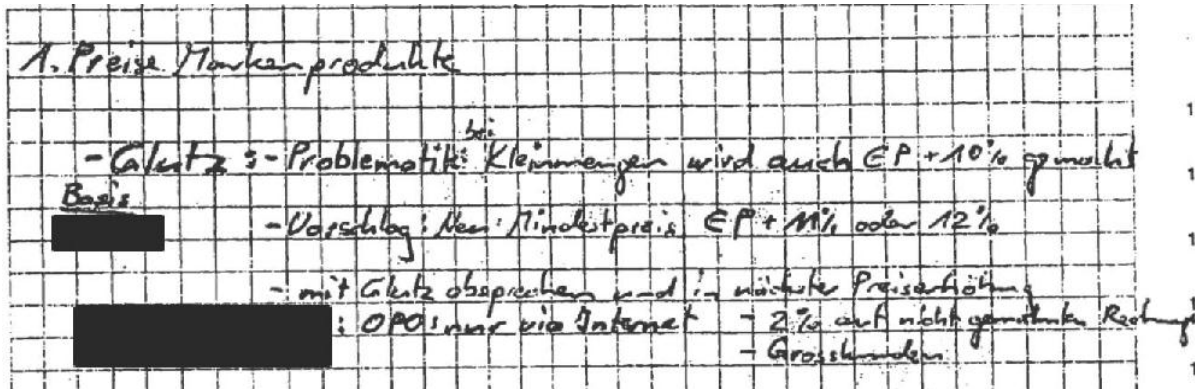 1. Preise Markenprodukte
- Glutz : - Problematik: bei Kleinmengen wird auch EP + 10% gemacht
Basis
- Vorschlag: Neu: Mindestpreis EP + 11% oder 12%
- mit Glutz absprechen und in nächster Preiserhöhung
: OPO: nur via Internet - 2% auf nicht Rechnungen
- Grosskunden